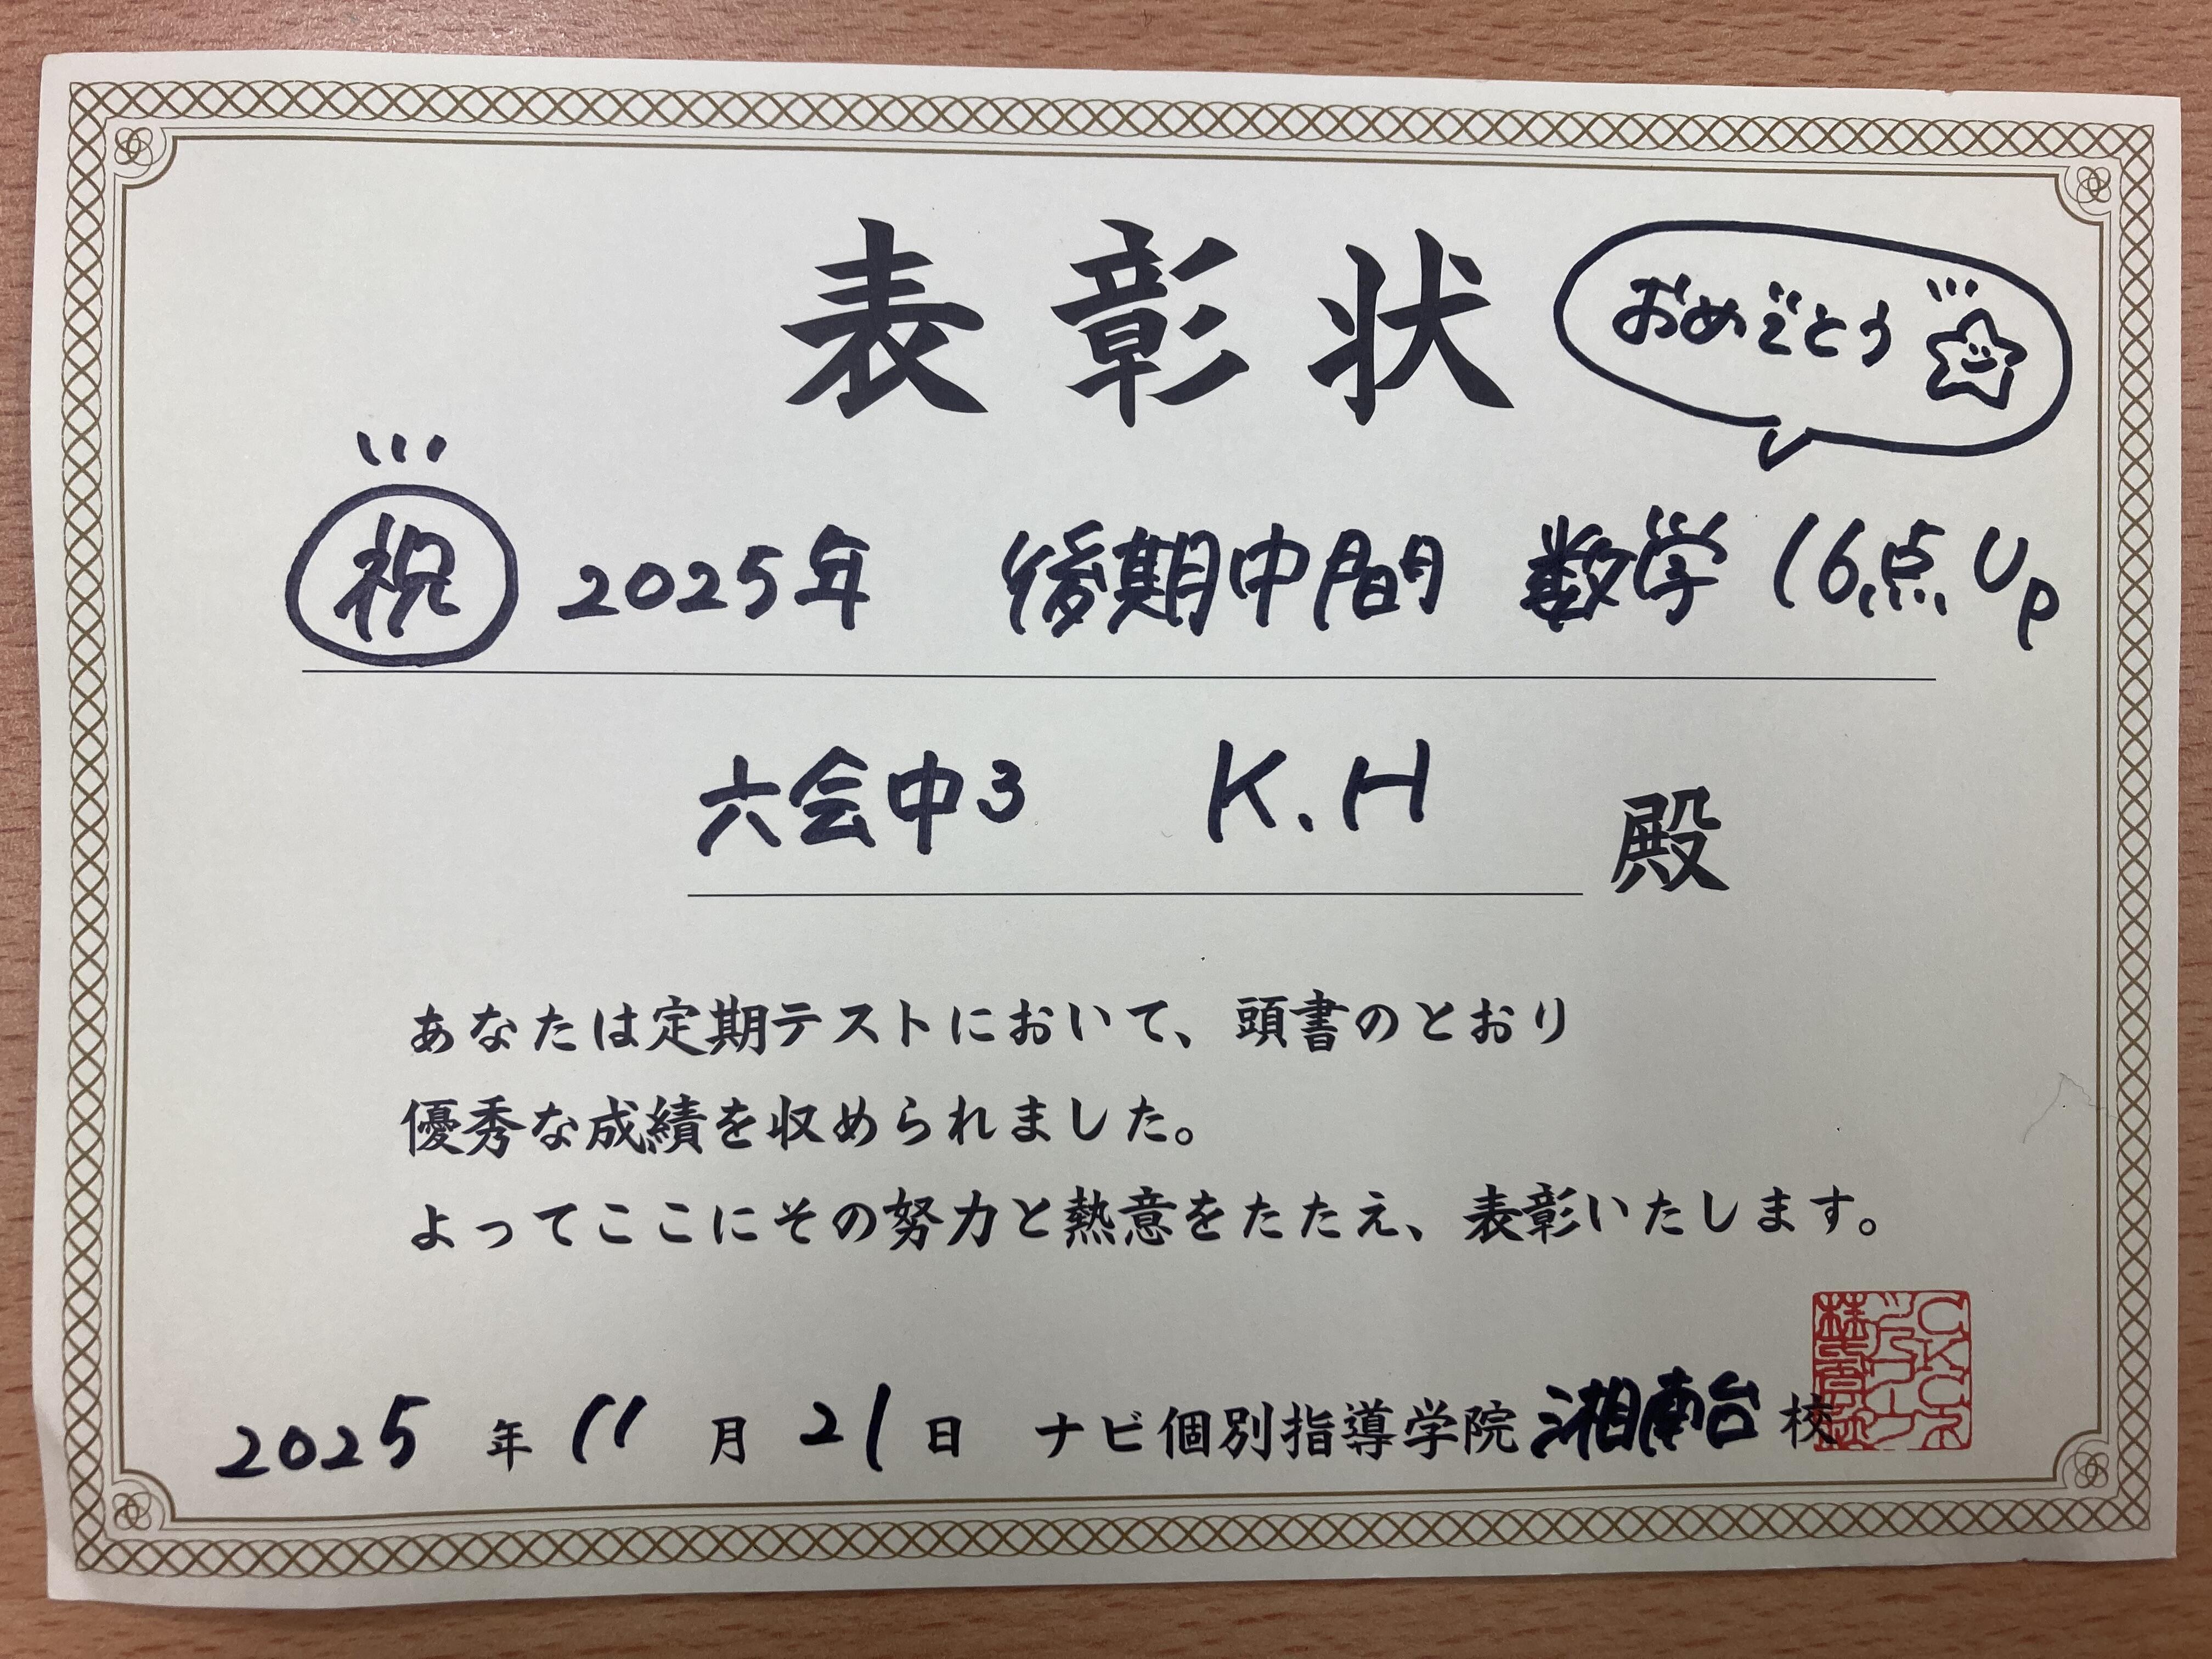 表彰状
おめでとう
祝 2025年 後期中間 数学 16点 Up
六会中3 K.H 殿
あなたは定期テストにおいて、頭書のとおり
優秀な成績を収められました。
よってここにその努力と熱意をたたえ、表彰いたします。
2025 年 11 月 21 日 ナビ個別指導学院 湘南台 校